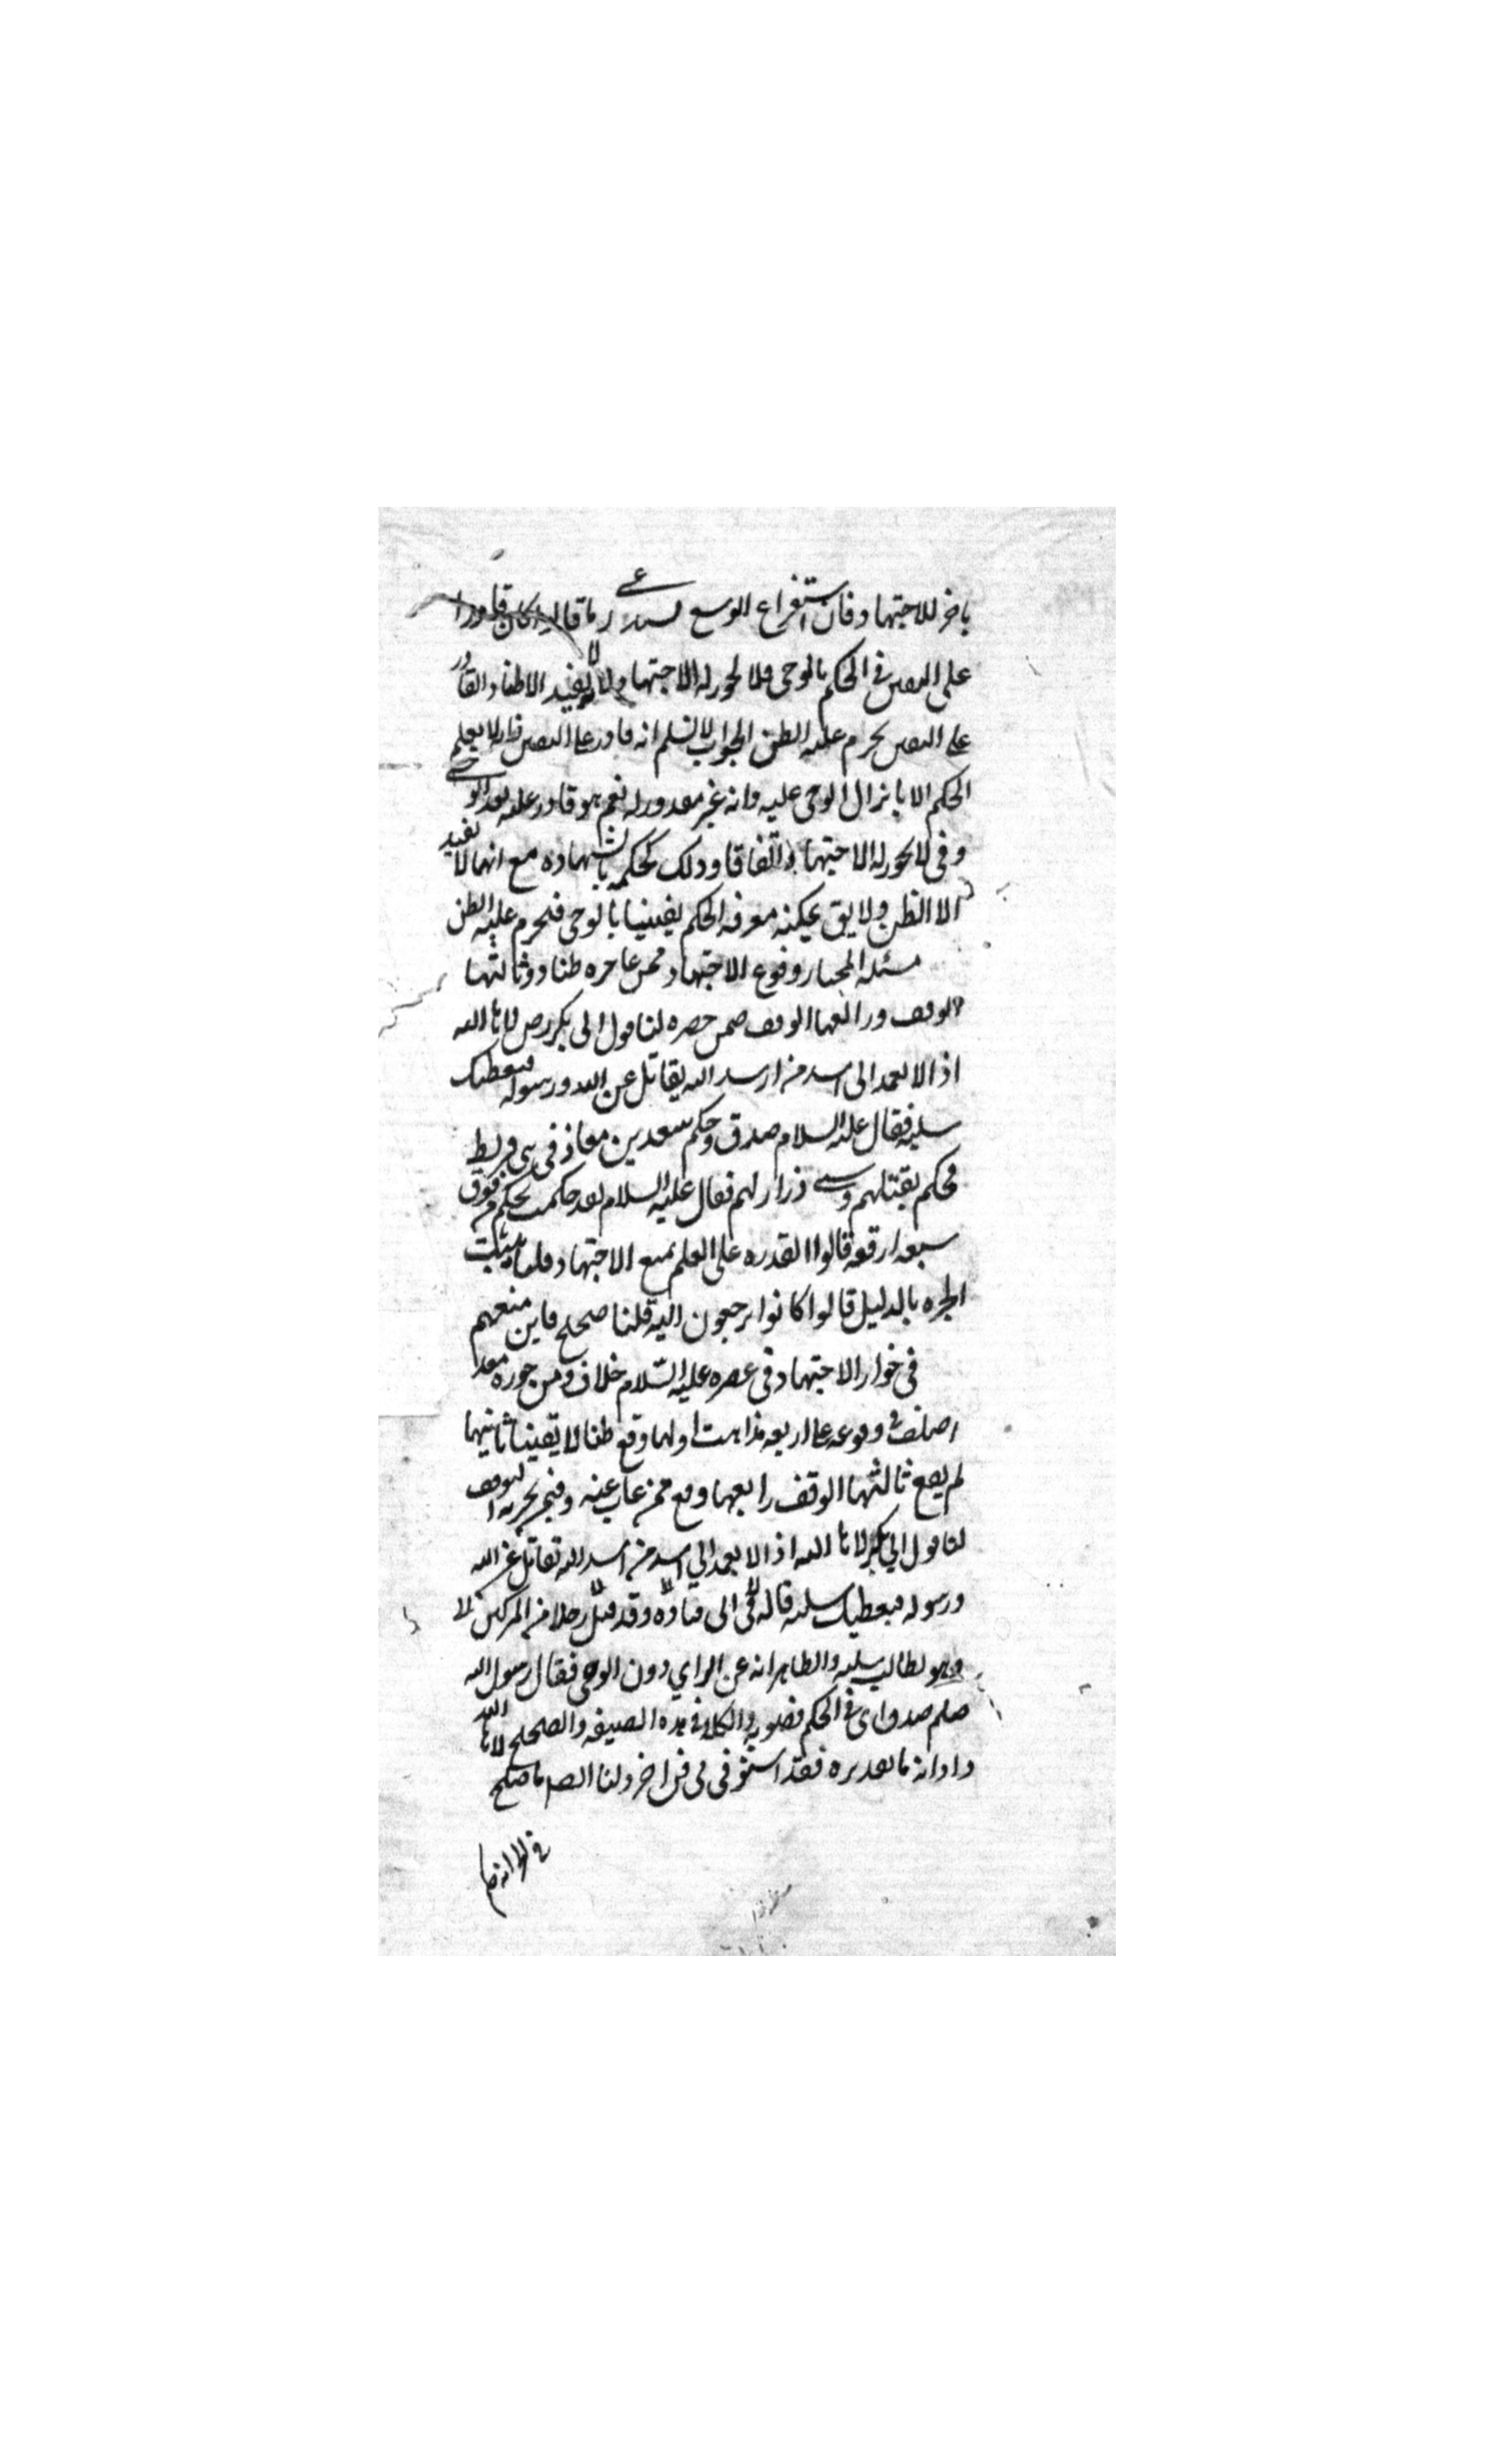 باخر للاجتهاد فان استفراغ الوسع يستدعى زمانا قالوا كان قادرا
على اليقين في الحكم بالوحى فلا يجوز له الاجتهاد لانه لا يفيد الا ظنا والقادر
على اليقين يحرم عليه الظن الجواب لا نسلم انه قادر على اليقين فانه لا يعلم
الحكم الا بانزال الوحى عليه وانه غير مقدور له نعم هو قادر عليه بعد الوحى
وفى لا يجوز له الاجتهاد اتفاقا وذلك كحكمه بالشهاده مع انها لا تفيد
الا الظن ولا يق يمكنه معرفه الحكم يقينيا بالوحى فيحرم عليه الظن
مسئله المختار وقوع الاجتهاد ممن عاصره ظنا وثالثها
الوقف ورابعها الوقف فيمن حضره لنا قول ابى بكر رض لاها الله
اذا لا يعمد الى اسد من اسد الله يقاتل عن الله ورسوله فيعطيك
سلبه فقال عليه السلام صدق وحكم سعد بن معاذ فى بنى قريظ
فحكم بقتلهم وسبى ذراريهم فقال عليه السلام لقد حكمت بحكم من فوق
سبعه ارقعه قالوا القدره على العلم تمنع الاجتهاد قلنا يثبت
الخيره بالدليل قالوا كانوا يرجعون اليه قلنا صحيح فاين منعهم
فى جواز الاجتهاد فى عصره عليه السلام خلاف ومن جوزه فقد
اختلف فى وقوعه على اربعه مذاهب اولها وقع ظنا لا يقينا ثانيها
لم يقع ثالثها الوقف رابعها وقع ممن غاب عنه وفيمن بحضرته الوقف
لنا قول ابي بكر لاها الله اذا لا يعمد الي اسد من اسد الله يقاتل عن الله
ورسوله فيعطيك سلبه قاله فى ابى قتاده وقد قتل رجلا من المشركين
وهو يطالب سلبه والظاهر انه عن الراي دون الوحى فقال رسول الله
صلم صدق اى فى الحكم فصوبه والكلام فى هذه الصيغه والصحيح لاها الله
ذا وانه ما تقديره فقد استوفى فى فن اخر ولنا ايضا ما صح